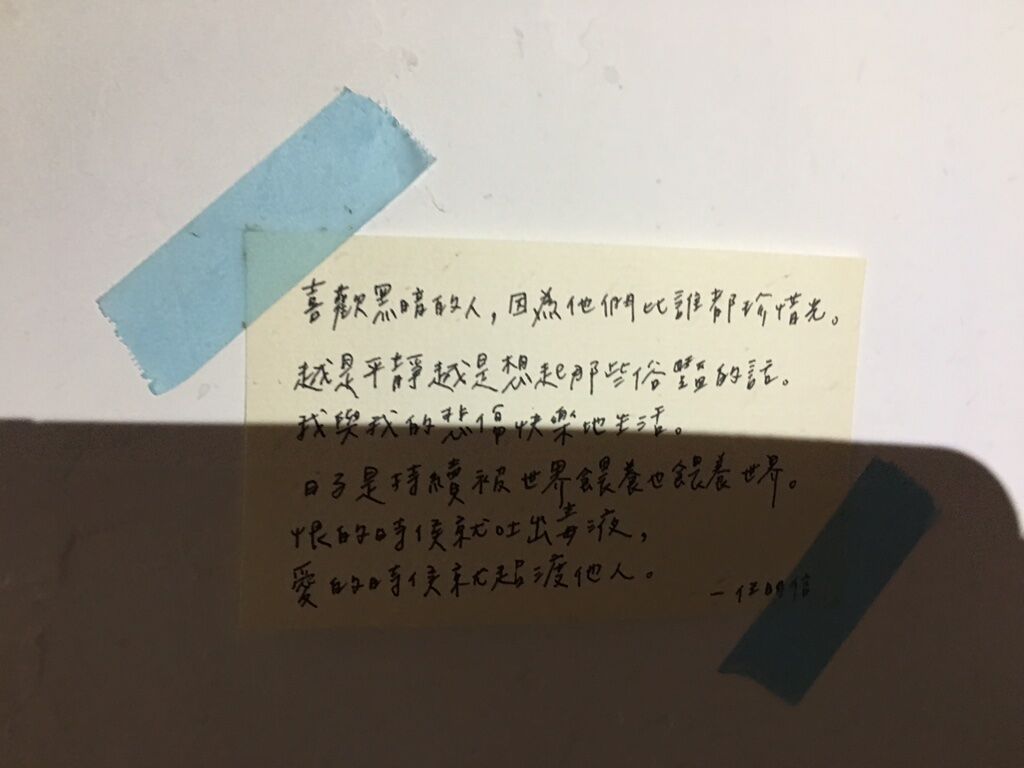 喜歡黑暗的人，因為他們比誰都珍惜光。
越是平靜越是想起那些俗豔的話。
我與我的悲傷快樂地生活。
日子是持續被世界餵養也餵養世界。
恨的時候就吐出毒液，
愛的時候就超渡他人。
—任明信